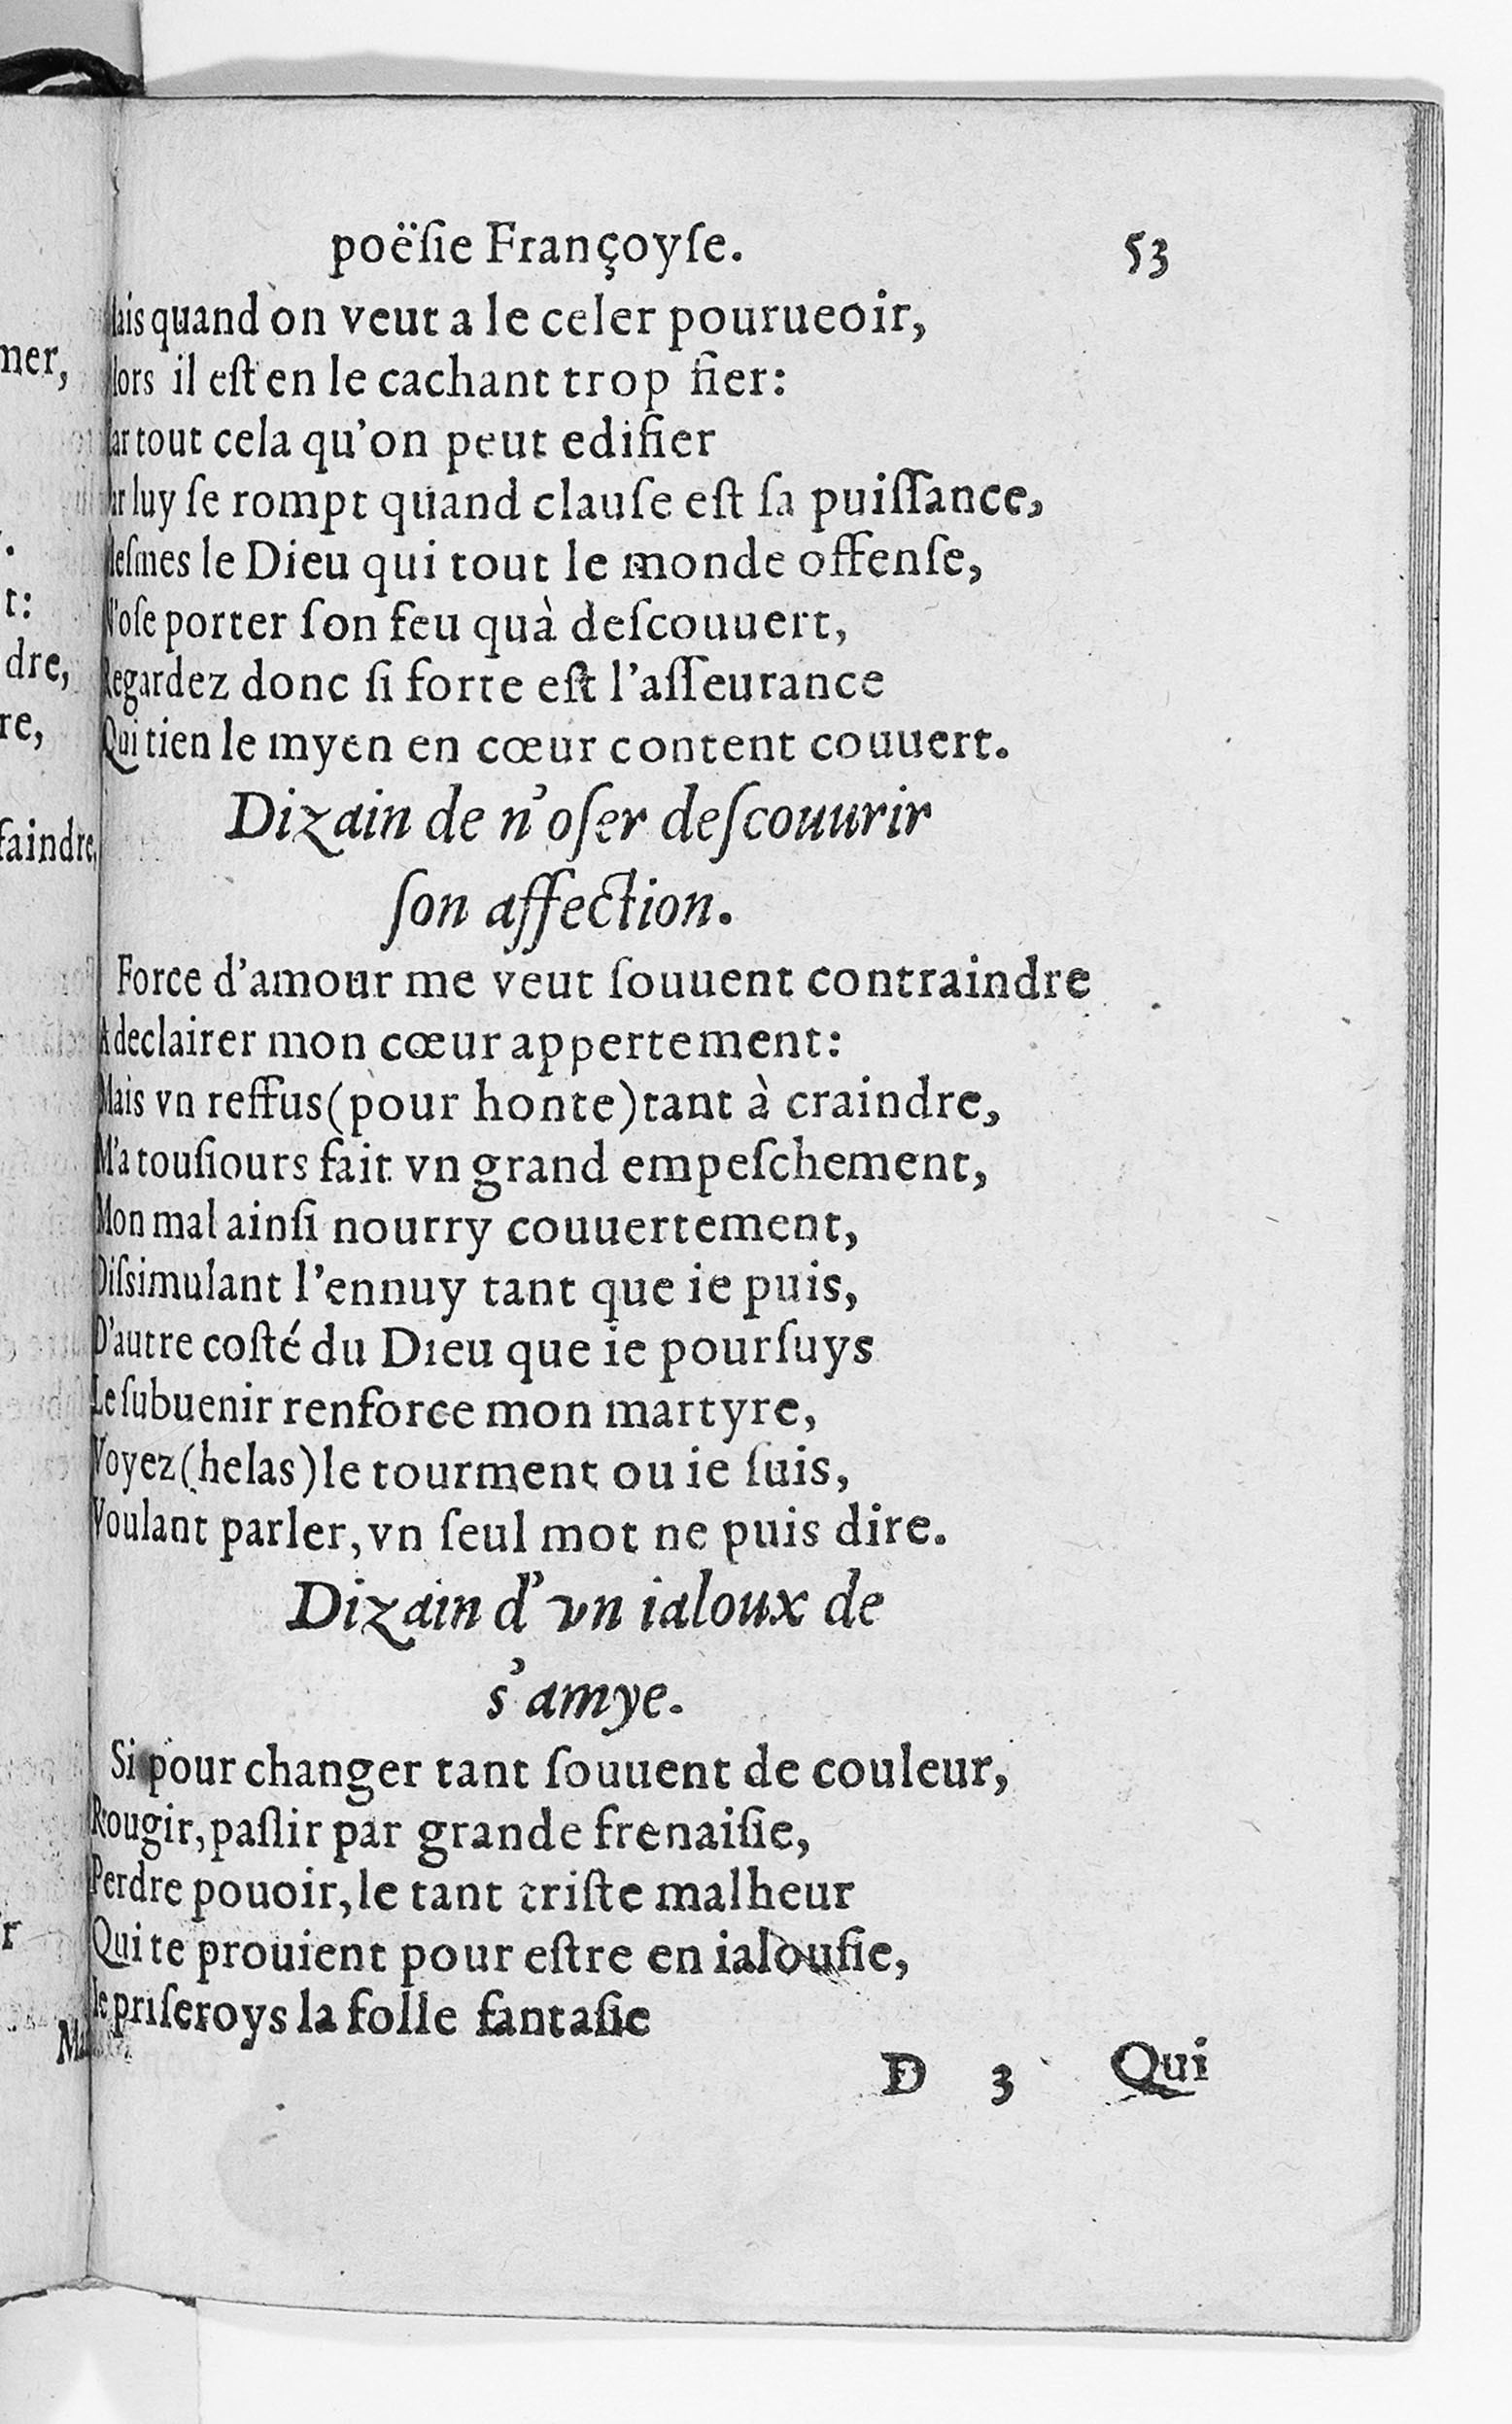 poëſie Françoyſe. 53
Mais quand on veut a le celer pourueoir,
Alors il eſt en le cachant trop fier:
Car tout cela qu'on peut edifier
Par luy ſe rompt quand clauſe eſt ſa puiſſance,
Meſmes le Dieu qui tout le monde offenſe,
N'oſe porter ſon feu quà deſcouuert,
Regardez donc ſi forte eſt l'aſſeurance
Qui tien le myen en cœur content couuert.
Dizain de n'oſer deſcouurir
ſon affection.
Force d'amour me veut ſouuent contraindre
A declairer mon cœur appertement:
Mais vn reffus (pour honte) tant à craindre,
M'a touſiours fait vn grand empeſchement,
Mon mal ainſi nourry couuertement,
Diſsimulant l'ennuy tant que ie puis,
D'autre coſté du Dieu que ie pourſuys
Le ſubuenir renforce mon martyre,
Voyez (helas) le tourment ou ie ſuis,
Voulant parler, vn ſeul mot ne puis dire.
Dizain d'vn ialoux de
s'amye.
Si pour changer tant ſouuent de couleur,
Rougir, paſlir par grande frenaiſie,
Perdre pouoir, le tant triſte malheur
Qui te prouient pour eſtre en ialouſie,
Ie priſeroys la folle fantaſie
D 3 Qui